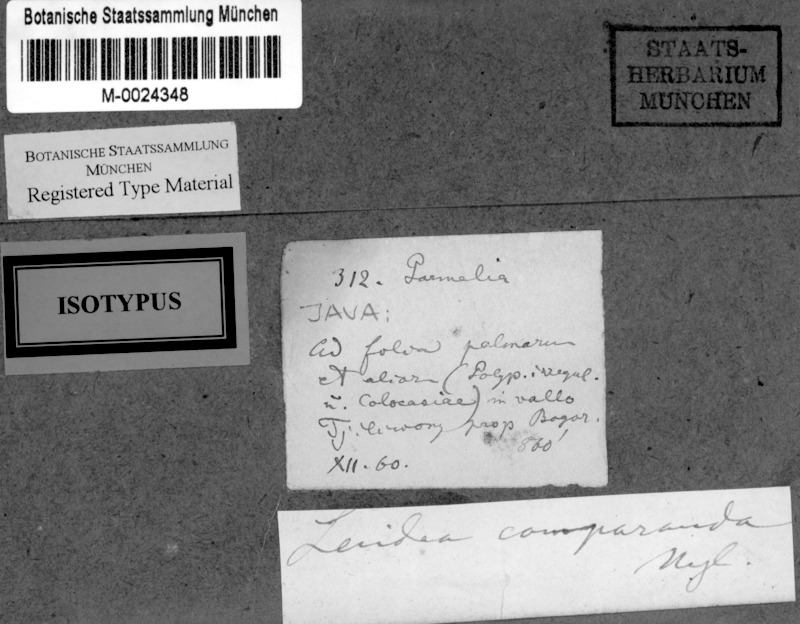 Botanische Staatssammlung München
M-0024348
STAATS-
HERBARIUM
MÜNCHEN
BOTANISCHE STAATSSAMMLUNG
MÜNCHEN
Registered Type Material
ISOTYPUS
312. Parmelia
JAVA:
Ad folia palmarum
et aliar (Polyp. irregul.
u. Colocasiae) in valle
Tjiliwong prop Bogor.
800'
XII. 60.
Lecidea comparanda
Nyl.